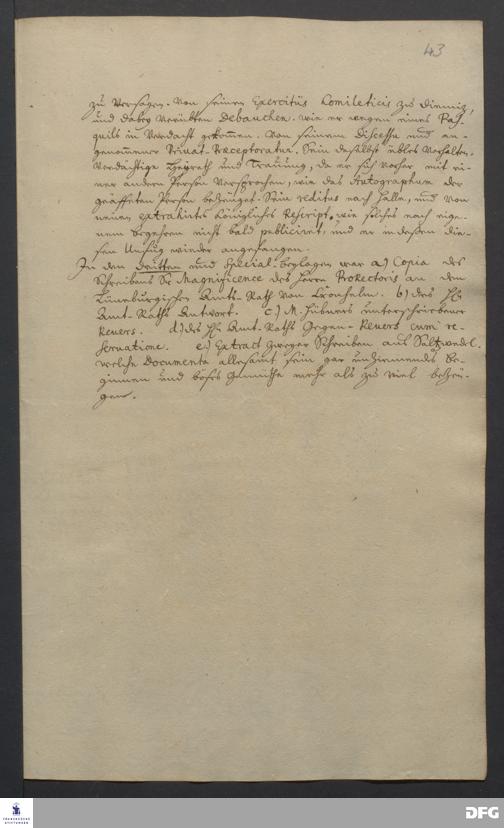 43
zu versagen. Von seinen Exercitiis homileticis zu Diemitz,
und dabey verübten Debauchen. wie er wegen eines Pas-
quils in Verdacht gekommen. Von seinem Discessu und an-
genommener Privat-Praeceptoratur. Sein daselbst übles Verhalten.
Verdächtige Heyrath und Trauung, da er sich vorher mit ei-
ner andern Person versprochen, wie das Autographum der
geäfften Person bezeuget. Sein reditus nach Halle, und von
neuen extrahirtes Königliches Rescript, wie solches nach eige-
nem begehren nicht bald publiciret, und er indessen die-
sen Unfug wieder angefangen.
In den dritten und Special-beylagen war a) Copia des
Schreibens Sr Magnificence des Herrn ProRectoris an den
Lüneburgischen Amts-Rath von b) des H.
Amt-Raths Antwort. c) M. Hübners unterschriebener
Revers. d) des H. Amt-Raths Gegen-Revers cum re-
servatione. e) Extract zweyer Schreiben aus Saltzwedel.
welche Documenta allesamt sein gar unziemendes be-
ginnen und böses Gemüthe mehr als zu viel bezeu-
gen.
FRANCKESCHE STIFTUNGEN
DFG